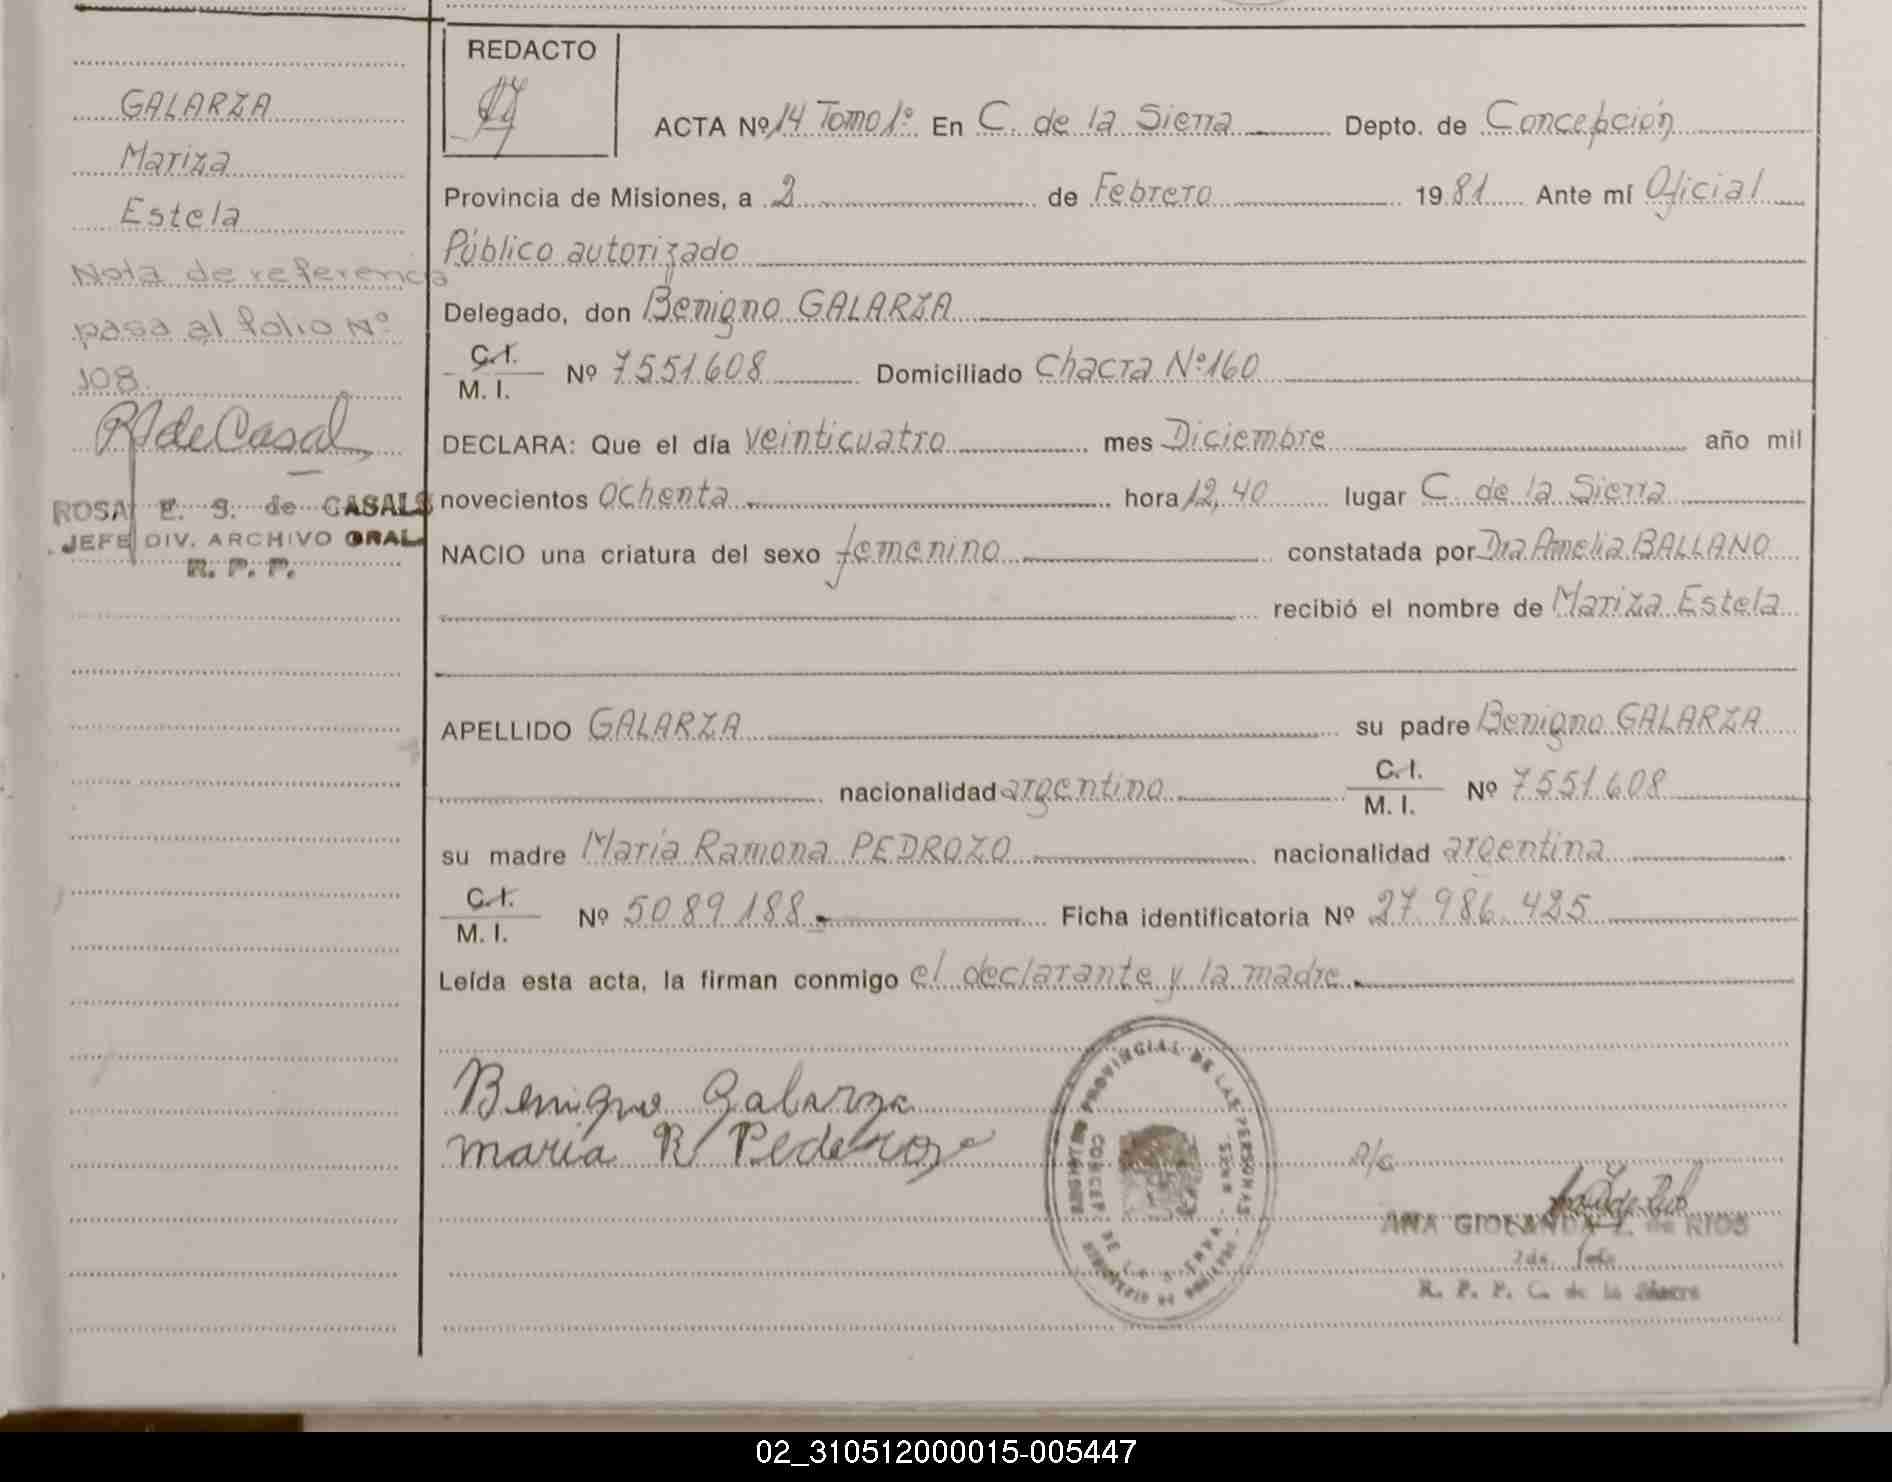 GALARZA
Mariza
Estela
Nota de referencia
pasa al folio Nº
108.
RdeCasal
ROSA E. S. de CASALS
JEFE DIV. ARCHIVO GRAL.
R. P. P.
REDACTO
ACTA Nº 14 Tomo 1º En C. de la Sierra Depto. de Concepción
Provincia de Misiones, a 2 de Febrero 1981 Ante mí Oficial
Público autorizado
Delegado, don Benigno GALARZA
C.I. M. I. Nº 7551608 Domiciliado Chacra Nº160
DECLARA: Que el día veinticuatro mes Diciembre año mil
novecientos ochenta hora 12,40 lugar C. de la Sierra
NACIO una criatura del sexo femenino constatada por Dra Amelia BALLANO
recibió el nombre de Mariza Estela
APELLIDO GALARZA su padre Benigno GALARZA
nacionalidad argentino C.I. M. I. Nº 7551608
su madre María Ramona PEDROZO nacionalidad argentina
C.I. M. I. Nº 5089188 Ficha identificatoria Nº 27 986 425
Leída esta acta, la firman conmigo el declarante y la madre.
Benigno Galarza
maria R Pederozo
REGISTRO PROVINCIAL DE LAS PERSONAS
CONCEP. DE LA SIERRA
A/C
ANA GIOLANDA de RIOS
R. P. P. C. de la Sierra
02_310512000015-005447